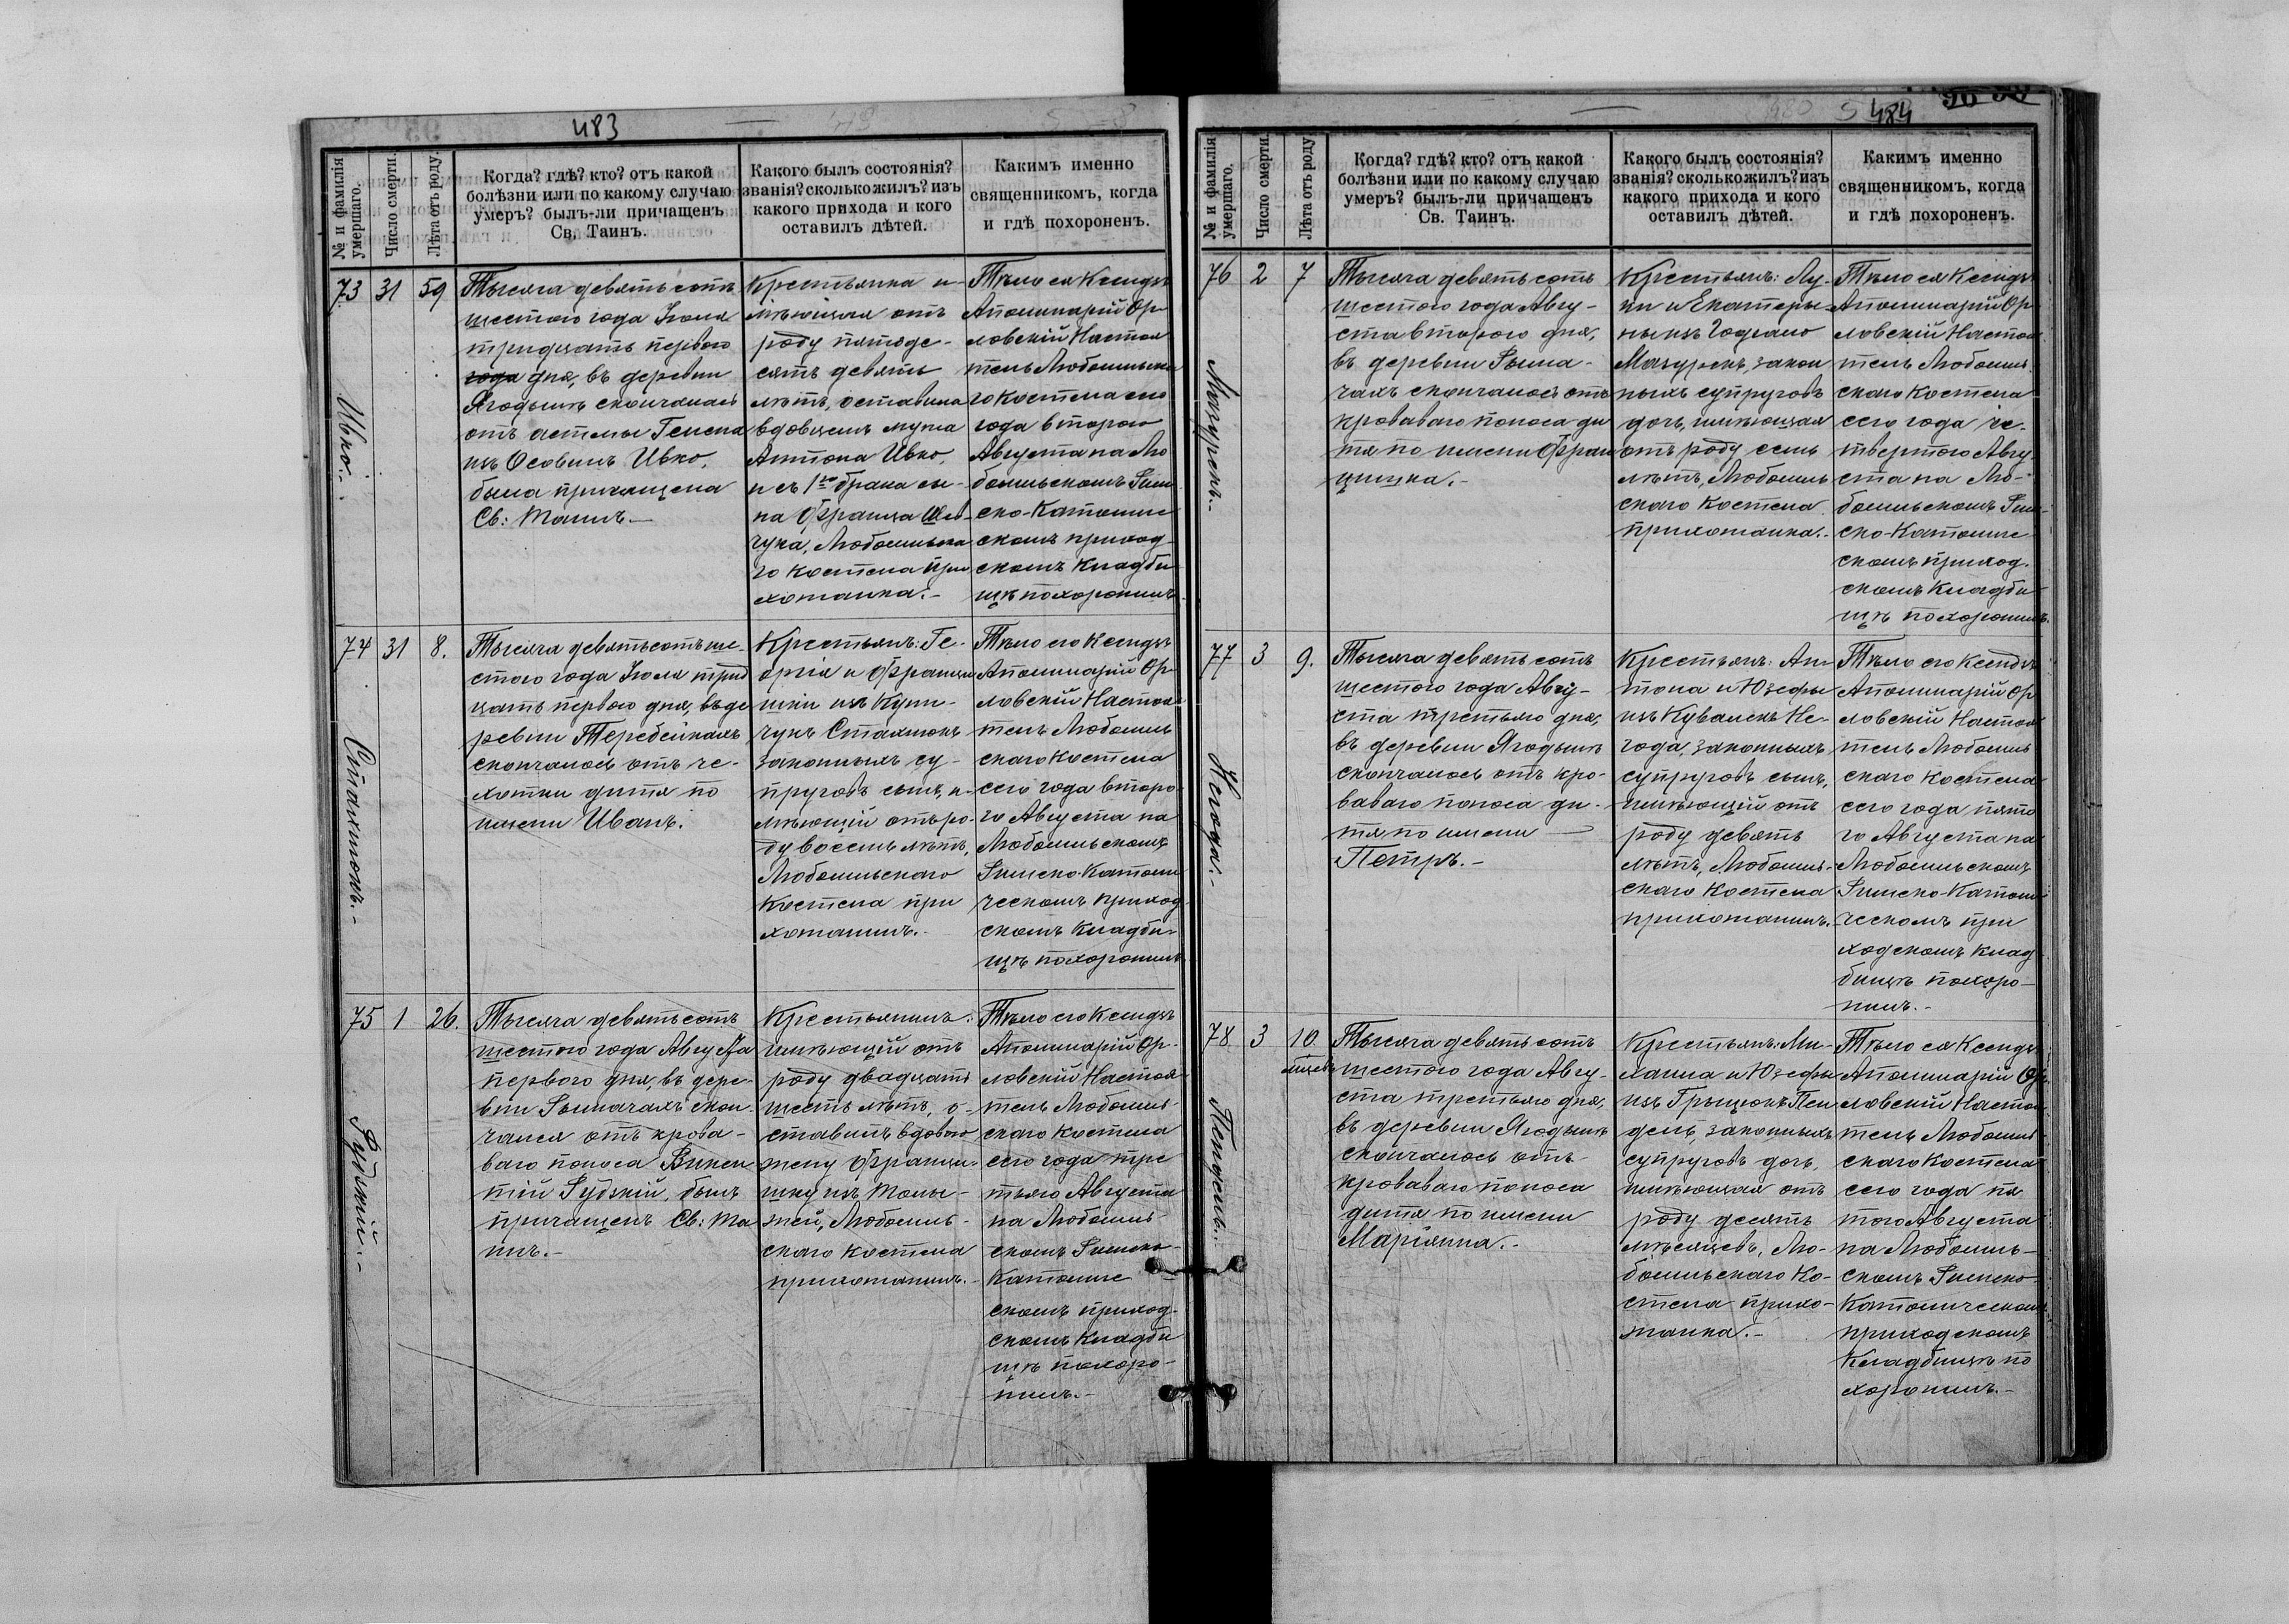 483
№ и фамилія умершаго.
Число смерти.
Лѣта отъ роду.
Когда? гдѣ? кто? отъ какой
болѣзни или по какому случаю
умеръ? былъ-ли причащенъ
Св. Таинъ.
Какого былъ состоянія?
званія? сколько жилъ? изъ
какого прихода и кого
оставилъ дѣтей.
Какимъ именно
священникомъ, когда
и гдѣ похороненъ.
73
Ивко.-
31
59
Тысяча девятьсотъ
шестого года Іюля
тридцать первого
года дня, въ деревни
Ягодынѣ скончалась
отъ астмы Гелена
изъ Осовыхъ Ивко,
была причащена
Св: Таинъ.—
Крестьянка и-
мѣющая отъ
роду пятьде-
сятъ девять
лѣтъ, оставила
вдовцемъ мужа
Антона Ивко,
и съ 1го брака сы-
на Франца
Любомльска
го костела при
хожанка.-
Тѣло ея Ксендзъ
Аполинарій Ор
ловскій Настоя
тель Любомльска
го Костела сего
года второго
Августа на Лю
бомльскомъ Рим
ско-Католиче
скомъ приход
скомъ Кладби
щѣ похоронилъ
74
Стахнюкъ.-
31
8.
Тысяча девятьсотъ ше-
стого года Іюля трид
цать первого дня, въ де
ревни Теребейкахъ
скончалось отъ че-
хотки дитя по
имени Иванъ.
Крестьянъ: Ге-
оргія и Францы
шки изъ
Стахнюкъ
законныхъ су-
пруговъ сынъ, и-
мѣющій отъ ро-
ду восемь лѣтъ,
Любомльскаго
Костела при
хожанинъ.-
Тѣло его Ксендзъ
Аполинарій Ор
ловскій Настоя
тель Любомль
скаго Костела
сего года второ
го Августа на
Любомльскомъ
Римско-Католи
ческомъ приход
скомъ Кладби-
щѣ похоронилъ
75
Рудзкій.-
1
26.
Тысяча девятьсотъ
шестого года Августа
первого дня, въ дере-
вни Рымачахъ скон-
чался отъ крова-
ваго поноса Викен
тій Рудзкій, былъ
причащенъ Св: Та
инъ.-
Крестьянинъ:
имѣющій отъ
роду двадцать
шесть лѣтъ, о-
ставилъ вдовою
жену Францы-
шку изъ
Любомль-
скаго костела
прихожанинъ.-
Тѣло его Ксендзъ
Аполинарій Ор-
ловскій Настоя-
тель Любомль-
скаго Костела
сего года тре
тьяго Августа
на Любомль
скомъ Римско-
Католиче
скомъ приход-
скомъ Кладби
щѣ похоро-
нилъ.-
484
№ и фамилія умершаго.
Число смерти.
Лѣта отъ роду.
Когда? гдѣ? кто? отъ какой
болѣзни или по какому случаю
умеръ? былъ-ли причащенъ
Св. Таинъ.
Какого былъ состоянія?
званія? сколько жилъ? изъ
какого прихода и кого
оставилъ дѣтей.
Какимъ именно
священникомъ, когда
и гдѣ похороненъ.
76
Мазурекъ.-
2
7
Тысяча девятьсотъ
шестого года Авгу-
ста второго дня,
въ деревни Рыма-
чахъ скончалось отъ
кроваваго поноса ди
тя по имени Фран
цишка.-
Крестьянъ: Лу-
ки и Екатери-
ны изъ
Мазурекъ, закон
ныхъ супруговъ
дочь, имѣющая
отъ роду семь
лѣтъ, Любомль
скаго Костела
прихожанка.-
Тѣло ея Ксендзъ
Аполинарій Ор
ловскій Настоя
тель Любомль
скаго Костела
сего года че-
твертого Авгу
ста на Лю-
бомльскомъ Рим-
ско-Католиче
скомъ приход-
скомъ Кладби
щѣ похоронилъ.
77
Негода.-
3
9.
Тысяча девятьсотъ
шестого года Авгу-
ста третьяго дня,
въ деревни Ягодынѣ
скончалось отъ кро-
ваваго поноса ди-
тя по имени —
Петръ.-
Крестьянъ: Ан
тона и Юзефы
изъ Ковалекъ Не-
года, законныхъ
супруговъ сынъ,
имѣющій отъ
роду девять
лѣтъ, Любомль-
скаго Костела
прихожанинъ.-
Тѣло его Ксендзъ
Аполинарій Ор
ловскій Настоя
тель Любомль
скаго Костела
сего года пято
го Августа на
Любомльскомъ
Римско-Католи
ческомъ при
ходскомъ клад
бищѣ похоро-
нилъ.-
78
3
10
мѣсяцевъ
Тысяча девятьсотъ
шестого года Авгу-
ста третьяго дня,
въ деревни Ягодынѣ
скончалось отъ
кроваваго поноса
дитя по имени
Маріянна.-
Крестьянъ: Ми-
хаила и Юзефы
изъ Грыцюкъ
законныхъ
супруговъ дочь,
имѣющая отъ
роду десять
мѣсяцевъ, Лю-
бомльскаго Ко-
стела прихо-
жанка.-
Тѣло ея Ксендзъ
Аполинарій Ор
ловскій Настоя
тель Любомль
скаго Костела
сего года пя
того Августа
на Любомль-
скомъ Римско-
Католическомъ
приходскомъ
Кладбищѣ по
хоронилъ.-